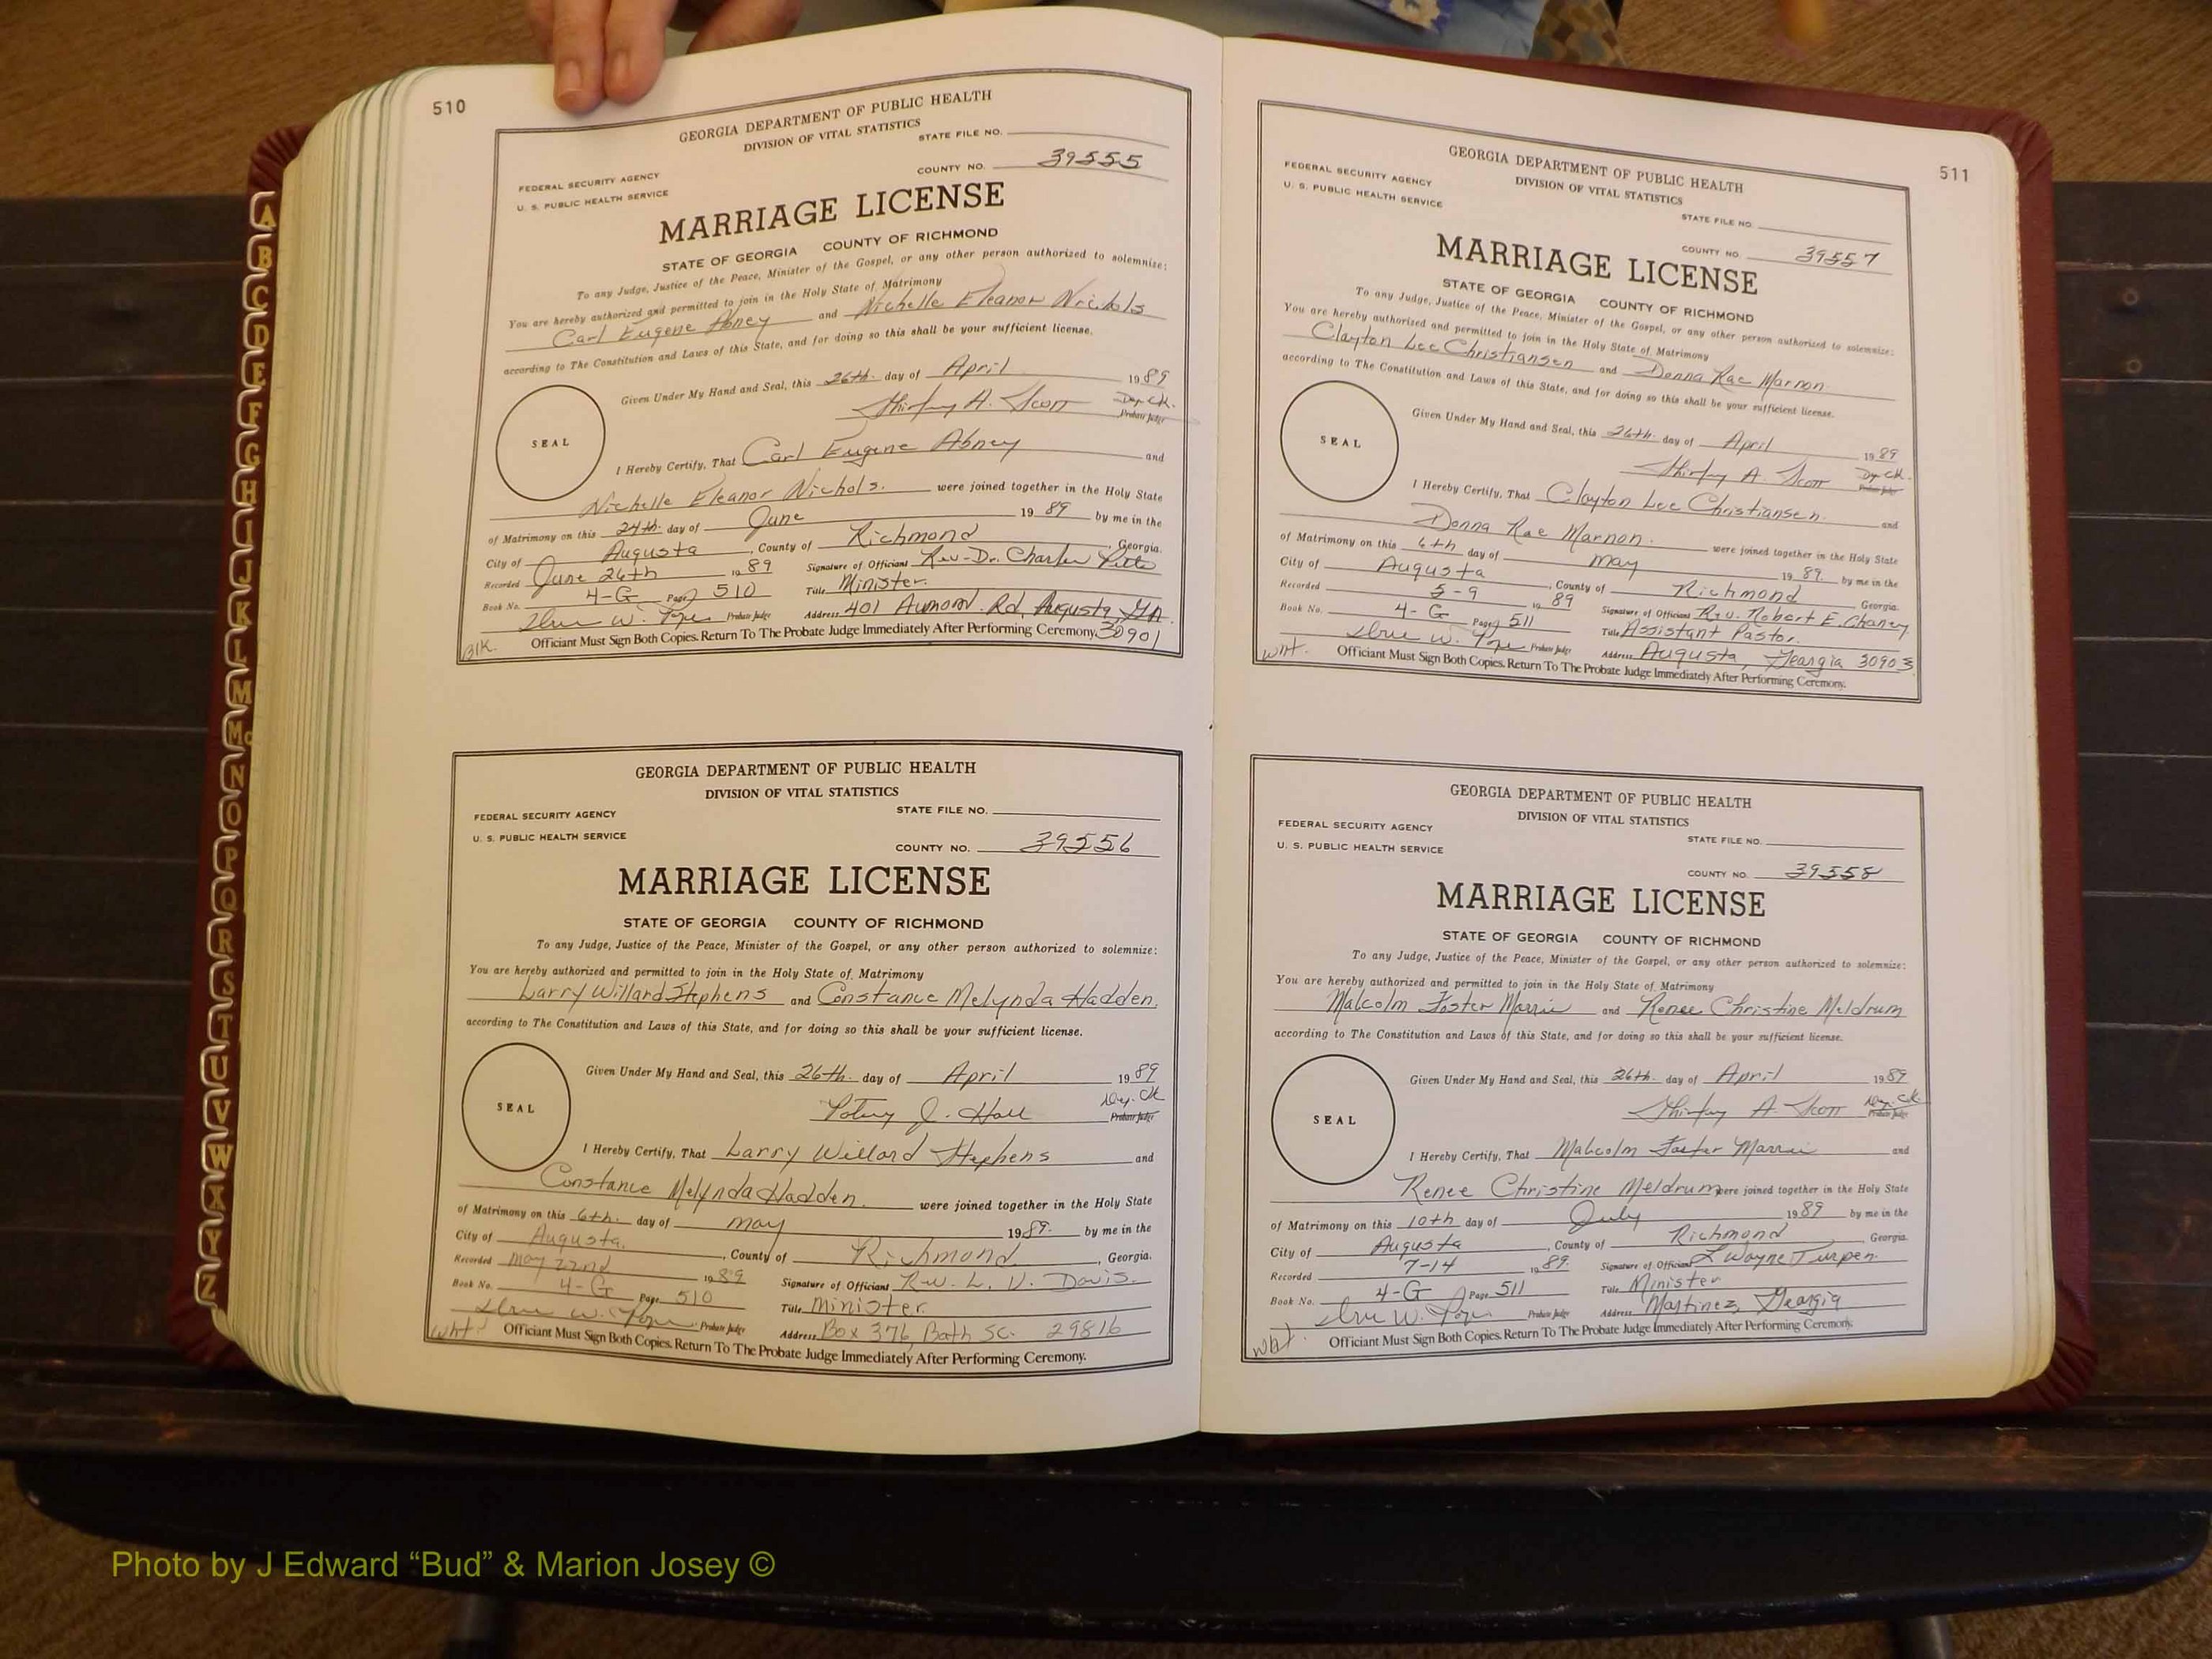 510
GEORGIA DEPARTMENT OF PUBLIC HEALTH
DIVISION OF VITAL STATISTICS
STATE FILE NO.
FEDERAL SECURITY AGENCY
U. S. PUBLIC HEALTH SERVICE
COUNTY NO. 39555
MARRIAGE LICENSE
STATE OF GEORGIA COUNTY OF RICHMOND
To any Judge, Justice of the Peace, Minister of the Gospel, or any other person authorized to solemnize:
You are hereby authorized and permitted to join in the Holy State of Matrimony
Carl Eugene Abney and Nichelle Eleanor Nichols
according to The Constitution and Laws of this State, and for doing so this shall be your sufficient license.
Given Under My Hand and Seal, this 26th. day of April 1989
Shirley A. Scott Dep. Ck.
Probate Judge
SEAL
I Hereby Certify, That Carl Eugene Abney and
Nichelle Eleanor Nichols. were joined together in the Holy State
of Matrimony on this 24th. day of June 19 89 by me in the
City of Augusta, County of Richmond, Georgia.
Recorded June 26th 19 89 Signature of Officiant Rev. Dr. Charles
Book No. 4-G Page 510 Title Minister.
Probate Judge Address 401 Aumond Rd, Augusta, GA.
Officiant Must Sign Both Copies. Return To The Probate Judge Immediately After Performing Ceremony. 30901
Blk.
GEORGIA DEPARTMENT OF PUBLIC HEALTH
DIVISION OF VITAL STATISTICS
FEDERAL SECURITY AGENCY STATE FILE NO.
U. S. PUBLIC HEALTH SERVICE
COUNTY NO. 39556
MARRIAGE LICENSE
STATE OF GEORGIA COUNTY OF RICHMOND
To any Judge, Justice of the Peace, Minister of the Gospel, or any other person authorized to solemnize:
You are hereby authorized and permitted to join in the Holy State of Matrimony
Larry Willard Stephens and Constance Melynda Hadden.
according to The Constitution and Laws of this State, and for doing so this shall be your sufficient license.
Given Under My Hand and Seal, this 26th. day of April 1989
J. Hall Dep. Ck
Probate Judge
SEAL
I Hereby Certify, That Larry Willard Stephens and
Constance Melynda Hadden. were joined together in the Holy State
of Matrimony on this 6th. day of May 1989. by me in the
City of Augusta, County of Richmond, Georgia.
Recorded May 22nd 1989 Signature of Officiant Rev. L. V. Davis.
Book No. 4-G Page 510 Title Minister.
Probate Judge Address Box 376, Bath SC. 29816
wht. Officiant Must Sign Both Copies. Return To The Probate Judge Immediately After Performing Ceremony.
511
GEORGIA DEPARTMENT OF PUBLIC HEALTH
DIVISION OF VITAL STATISTICS
FEDERAL SECURITY AGENCY
U. S. PUBLIC HEALTH SERVICE
STATE FILE NO.
COUNTY NO. 39557
MARRIAGE LICENSE
STATE OF GEORGIA COUNTY OF RICHMOND
To any Judge, Justice of the Peace, Minister of the Gospel, or any other person authorized to solemnize:
You are hereby authorized and permitted to join in the Holy State of Matrimony
Clayton Lee Christiansen and Donna Rae Marnon
according to The Constitution and Laws of this State, and for doing so this shall be your sufficient license.
Given Under My Hand and Seal, this 26th. day of April 1989
Shirley A. Scott Dep. Ck.
Probate Judge
SEAL
I Hereby Certify, That Clayton Lee Christiansen. and
Donna Rae Marnon. were joined together in the Holy State
of Matrimony on this 6th day of May 1989. by me in the
City of Augusta, County of Richmond Georgia.
Recorded 5-9 19 89 Signature of Officiant Rev. Robert E. Chaney
Book No. 4-G Page 511 Title Assistant Pastor.
Probate Judge Address Augusta, Georgia 30903
wht. Officiant Must Sign Both Copies. Return To The Probate Judge Immediately After Performing Ceremony.
GEORGIA DEPARTMENT OF PUBLIC HEALTH
DIVISION OF VITAL STATISTICS
FEDERAL SECURITY AGENCY
STATE FILE NO.
U. S. PUBLIC HEALTH SERVICE
COUNTY NO. 39558
MARRIAGE LICENSE
STATE OF GEORGIA COUNTY OF RICHMOND
To any Judge, Justice of the Peace, Minister of the Gospel, or any other person authorized to solemnize:
You are hereby authorized and permitted to join in the Holy State of Matrimony
Malcolm Foster and Renee Christine Meldrum
according to The Constitution and Laws of this State, and for doing so this shall be your sufficient license.
Given Under My Hand and Seal, this 26th. day of April 1989
Shirley A. Scott Dep. Ck
Probate Judge
SEAL
I Hereby Certify, That Malcolm Foster and
Renee Christine Meldrum were joined together in the Holy State
of Matrimony on this 10th day of July 1989 by me in the
City of Augusta, County of Richmond Georgia.
Recorded 7-14 1989. Signature of Officiant L Wayne Turpen
Book No. 4-G Page 511 Title Minister
Probate Judge Address Martinez, Georgia
wht. Officiant Must Sign Both Copies. Return To The Probate Judge Immediately After Performing Ceremony.
A
B
C
D
E
F
G
H
I
J
K
L
M
Mc
N
O
P
Q
R
S
T
U
V
W
X
Y
Z
Photo by J Edward “Bud” & Marion Josey ©